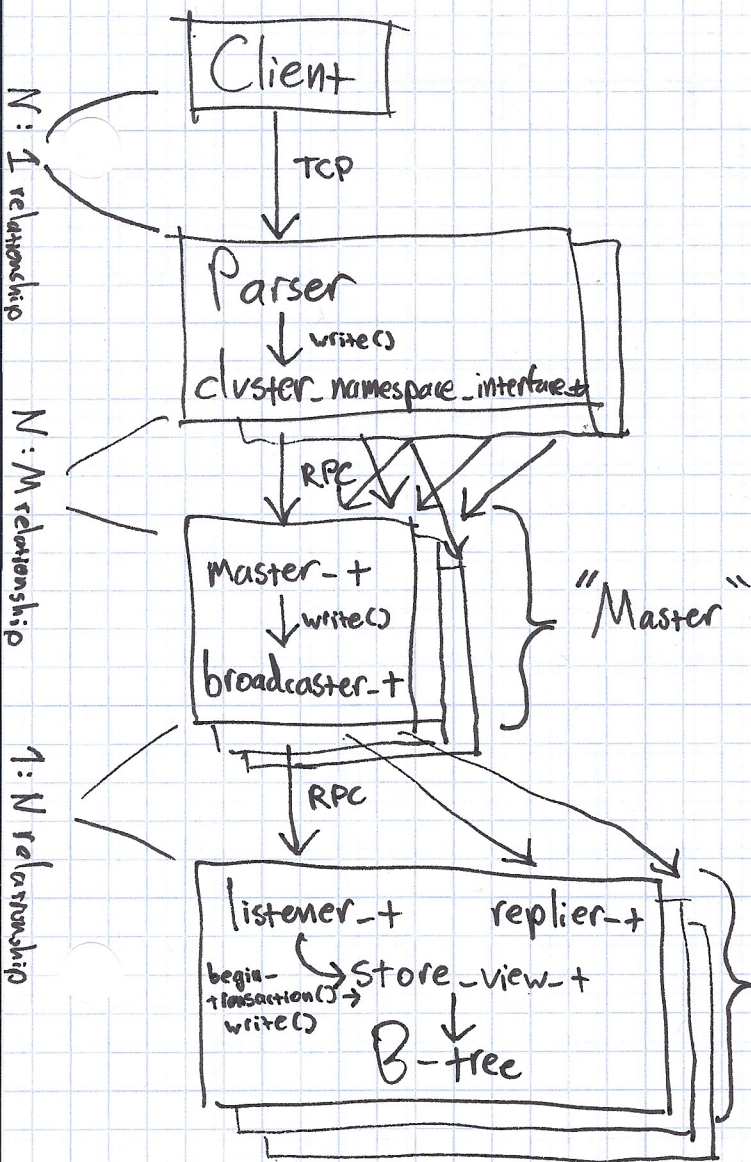 Client
TCP
N:1 relationship
Parser
write()
cluster_namespace_interface_t
N:M relationship
RPC
master_t
write()
broadcaster_t
"Master"
1:N relationship
RPC
listener_t
replier_t
begin_
transaction()->
write()
store_view_t
B-tree